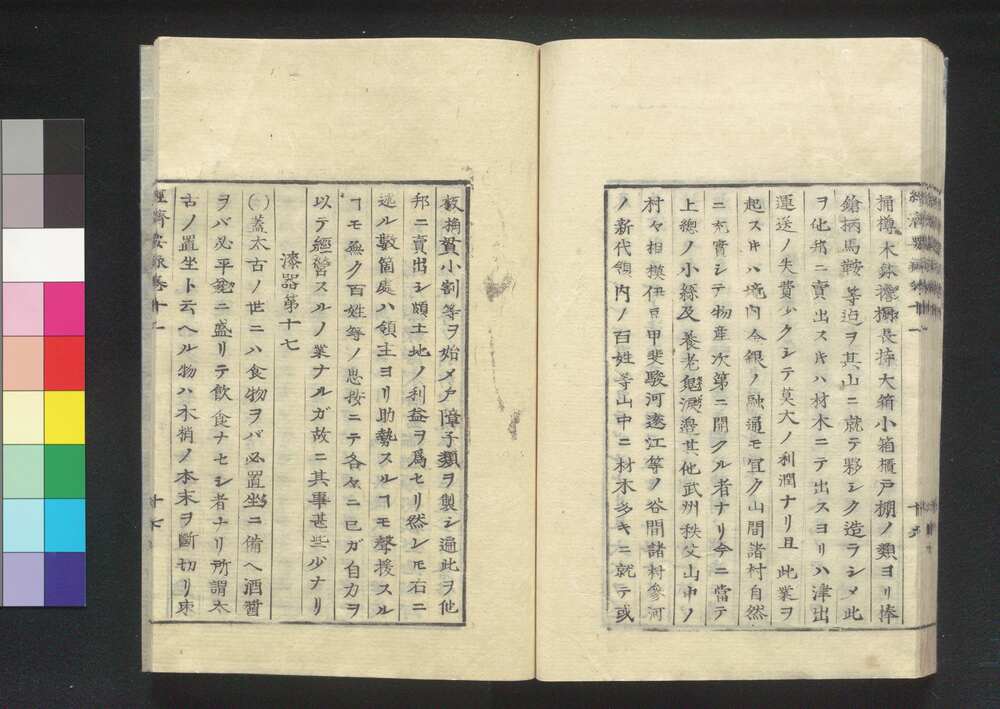 桶樽木鉢膳棚長持大箱小箱櫃戸棚ノ類ヨリ棒
鎗柄馬鞍等迠ヲ其山ニ就テ夥シク造ラシメ此
ヲ他邦ニ賣出スキハ材木ニテ出スヨリハ津出
運送ノ失費少クシテ莫大ノ利潤ナリ且此業ヲ
起スキハ境内金銀ノ融通モ宜ク山間諸村自然
ニ充實シテ物産次第ニ開クル者ナリ今ニ當テ
上總ノ小糸及養老鬼淚灣其他武州秩父山中ノ
村々相模伊豆甲斐駿河遠江等ノ谷間諸村參河
ノ新代領内ノ百姓等山中ニ材木多キニ就テ或
板桷貫小割等ヲ始メ戸障子類ヲ製シ遍此ヲ他
邦ニ賣出シ頗土地ノ利益ヲ爲セリ然レモ右ニ
述ル數箇處ハ領主ヨリ助勢スルヿモ聲援スル
ヿモ無ク百姓等ノ思按ニテ各々ニ己ガ自力ヲ
以テ經營スルノ業ナルガ故ニ其事甚些少ナリ
漆器第十七
( )蓋太古ノ世ニハ食物ヲバ必置坐ニ備ヘ酒醬
ヲバ必平瓮ニ盛リテ飲食ナセシ者ナリ所謂太
古ノ置坐ト云ヘル物ハ木梢ノ本末ヲ斷切リ束
經濟要錄卷十一
十六